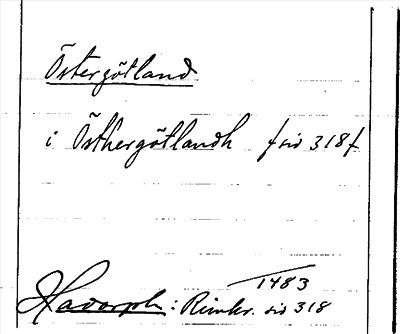 Östergötland
i Östhergötlandh f sid 318 f
1483
Hadorph: Rimkr. sid 318